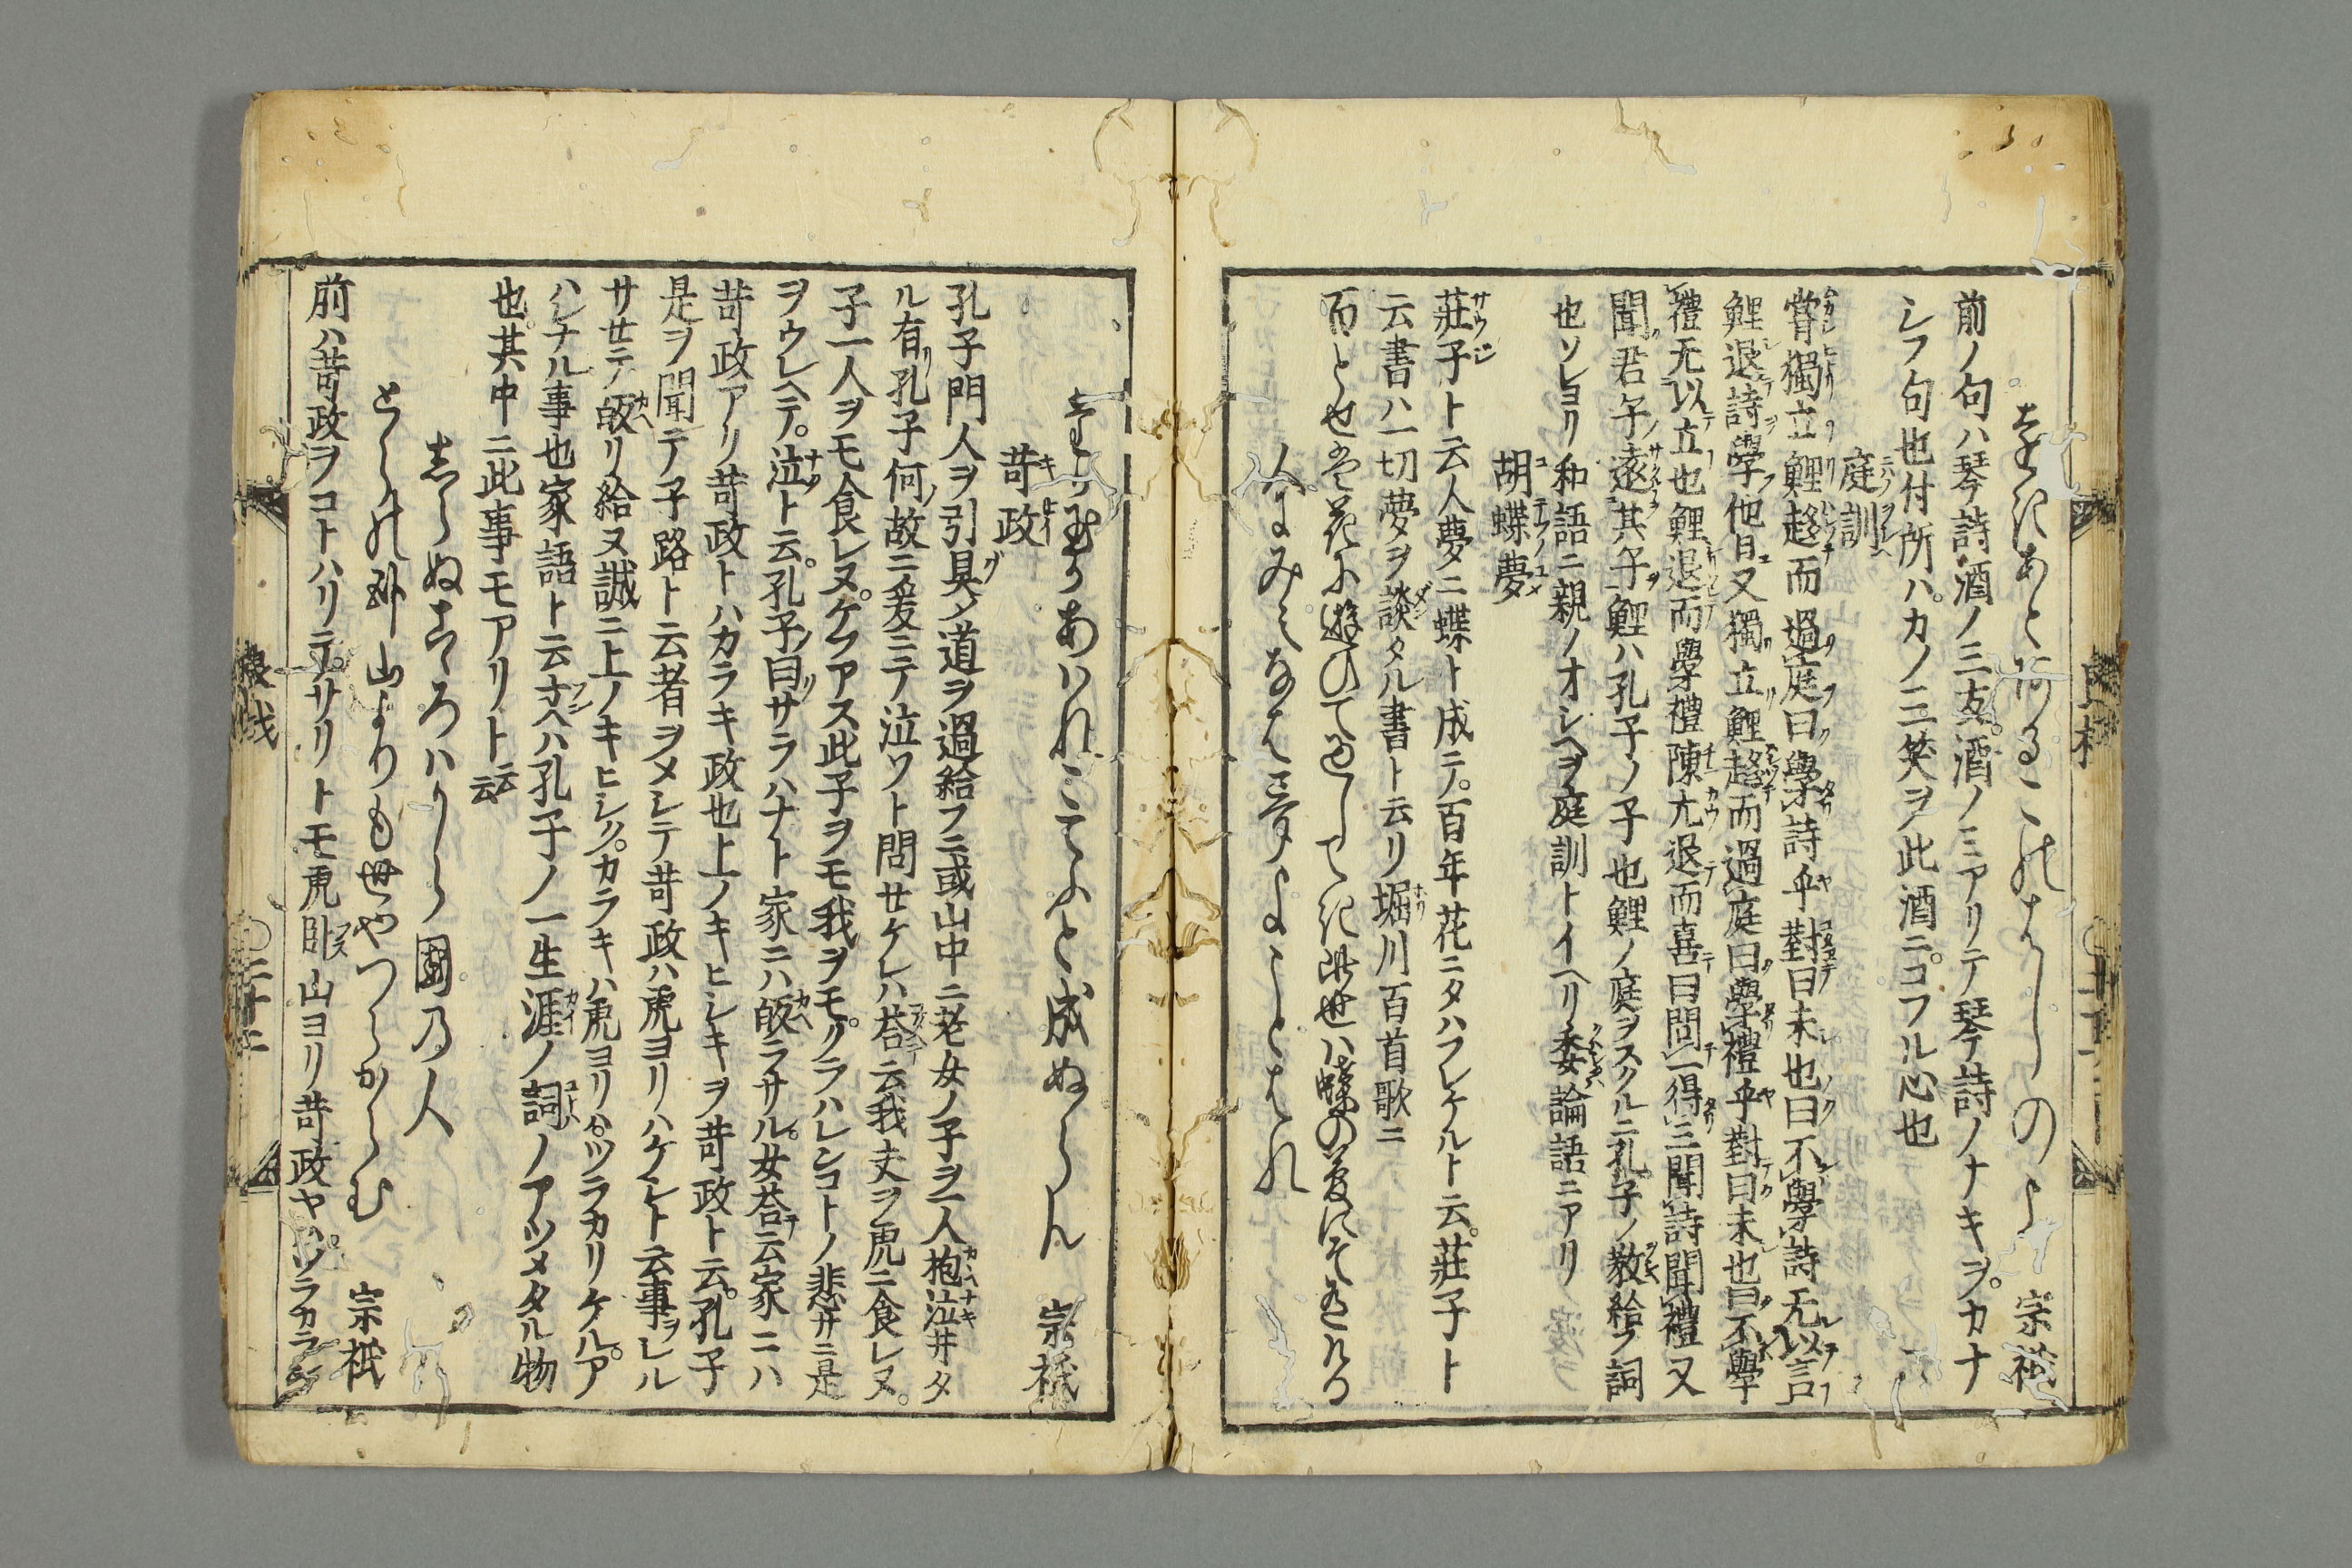 宗祇
前ノ句ハ琴詩酒ノ三友。酒ノミアリテ琴詩ノナキヲ。カナ
シフ句也付所ハ。カノ三笑ヲ此酒ニ。コフル心也
庭訓
甞獨立鯉趍而過庭曰學詩乎對曰未也曰不學詩无以言
鯉退詩學他日又獨立鯉趍而過庭曰學禮乎對曰未也曰不學
禮无以立也鯉退而學禮陳亢退而喜曰問一得三聞詩聞禮又
聞君子遠其子鯉ハ孔子ノ子也鯉ノ庭ヲスクルニ孔子ノ教給フ詞
也ソレヨリ和語ニ親ノオシヘヲ庭訓トイヘリ委論語ニアリ
胡蝶夢
莊子ト云人夢ニ蝶ト成テ。百年花ニタハフレケルト云。莊子ト
云書ハ一切夢ヲ談タル書ト云リ堀川百首歌ニ
百とせは花に遊ひて過してき此世は蝶の夢にそ有ける
人はみな
あはれこてふと成ぬらん 宗祇
苛政
孔子門人ヲ引具シ道ヲ過給フニ或山中ニ老女ノ子ヲ一人抱泣井タ
ル有リ孔子何ノ故ニ爰ニテ泣ソト問せケレハ荅云我夫ヲ虎ニ食レヌ。
子一人ヲモ食レヌ。ケフアス此子ヲモ我ヲモ。クラハレンコトノ悲サニ是
ヲウレヘテ。泣ト云。孔子曰サラハナト家ニハ皈ラサル。女荅云家ニハ
苛政アリ苛政トハカラキ政也上ノキヒシキヲ苛政ト云。孔子
是ヲ聞テ子路ト云者ヲメシテ苛政ハ虎ヨリハケシト云事ヲシル
サせテ皈リ給ヌ誠ニ上ノキヒシク。カラキハ虎ヨリハ。ツラカリケル。ア
ハレナル事也家語ト云ナヘハ孔子ノ一生涯ノ詞ノアツメタル物
也。其中ニ此事モアリト云云
しらぬところハうし國の人
とらの臥山よりも世やつらからむ 宗祇
前ハ苛政ヲコトハリテ。サリトモ虎臥山ヨリ苛政ヤハツラカラン